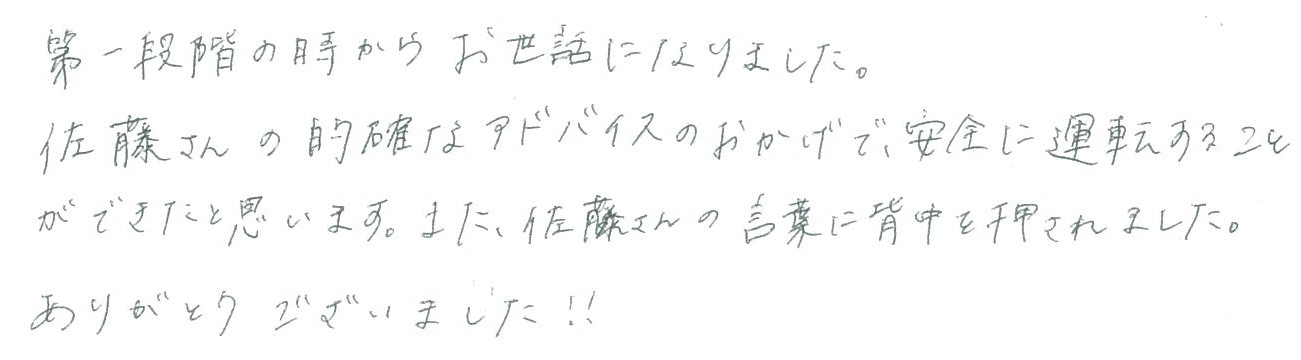 第一段階の時からお世話になりました。
佐藤さんの的確なアドバイスのおかげで、安全に運転すること
ができたと思います。また、佐藤さんの言葉に背中を押されました。
ありがとうございました!!